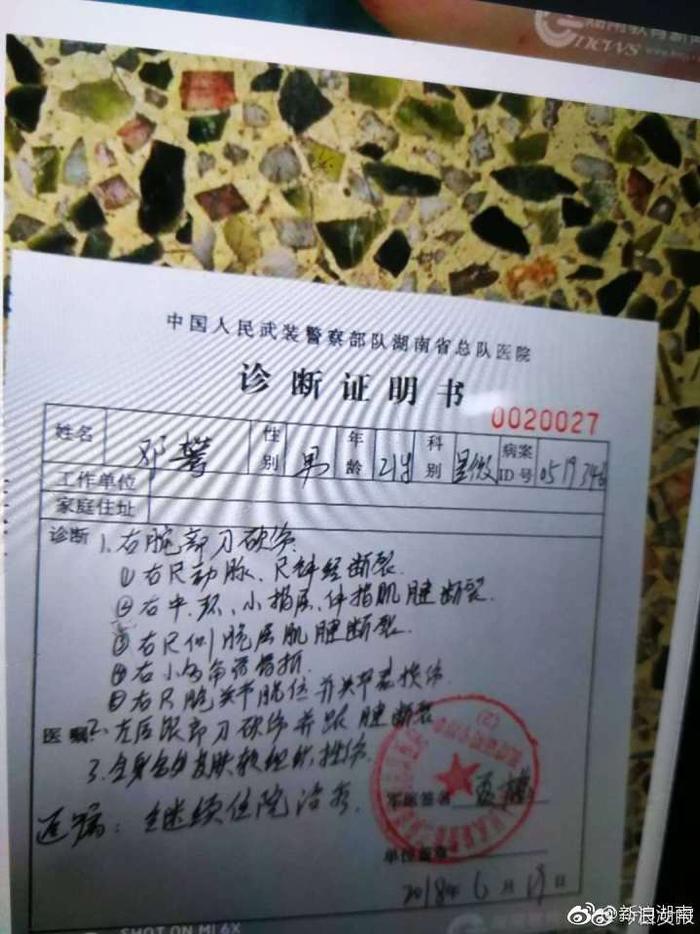 news
中国人民武装警察部队湖南省总队医院
诊断证明书
0020027
姓名 邓 性别 男 年龄 科别 显微 病案ID号
工作单位
家庭住址
诊断 1.右腕部刀砍伤
①右尺动脉、尺神经断裂.
②右中.环、小指屈、伸指肌腱断裂.
③右尺侧腕屈肌腱断裂.
④右小多角骨骨折.
⑤右尺腕关节脱位并关节囊损伤
医嘱 2.左后跟部刀砍伤并跟腱断裂
3.全身多处皮肤软组织挫伤.
医嘱:继续住院治疗.
医师签名
单位盖章
2018年6月 日
SHOT ON MI 6X
@新浪湖南